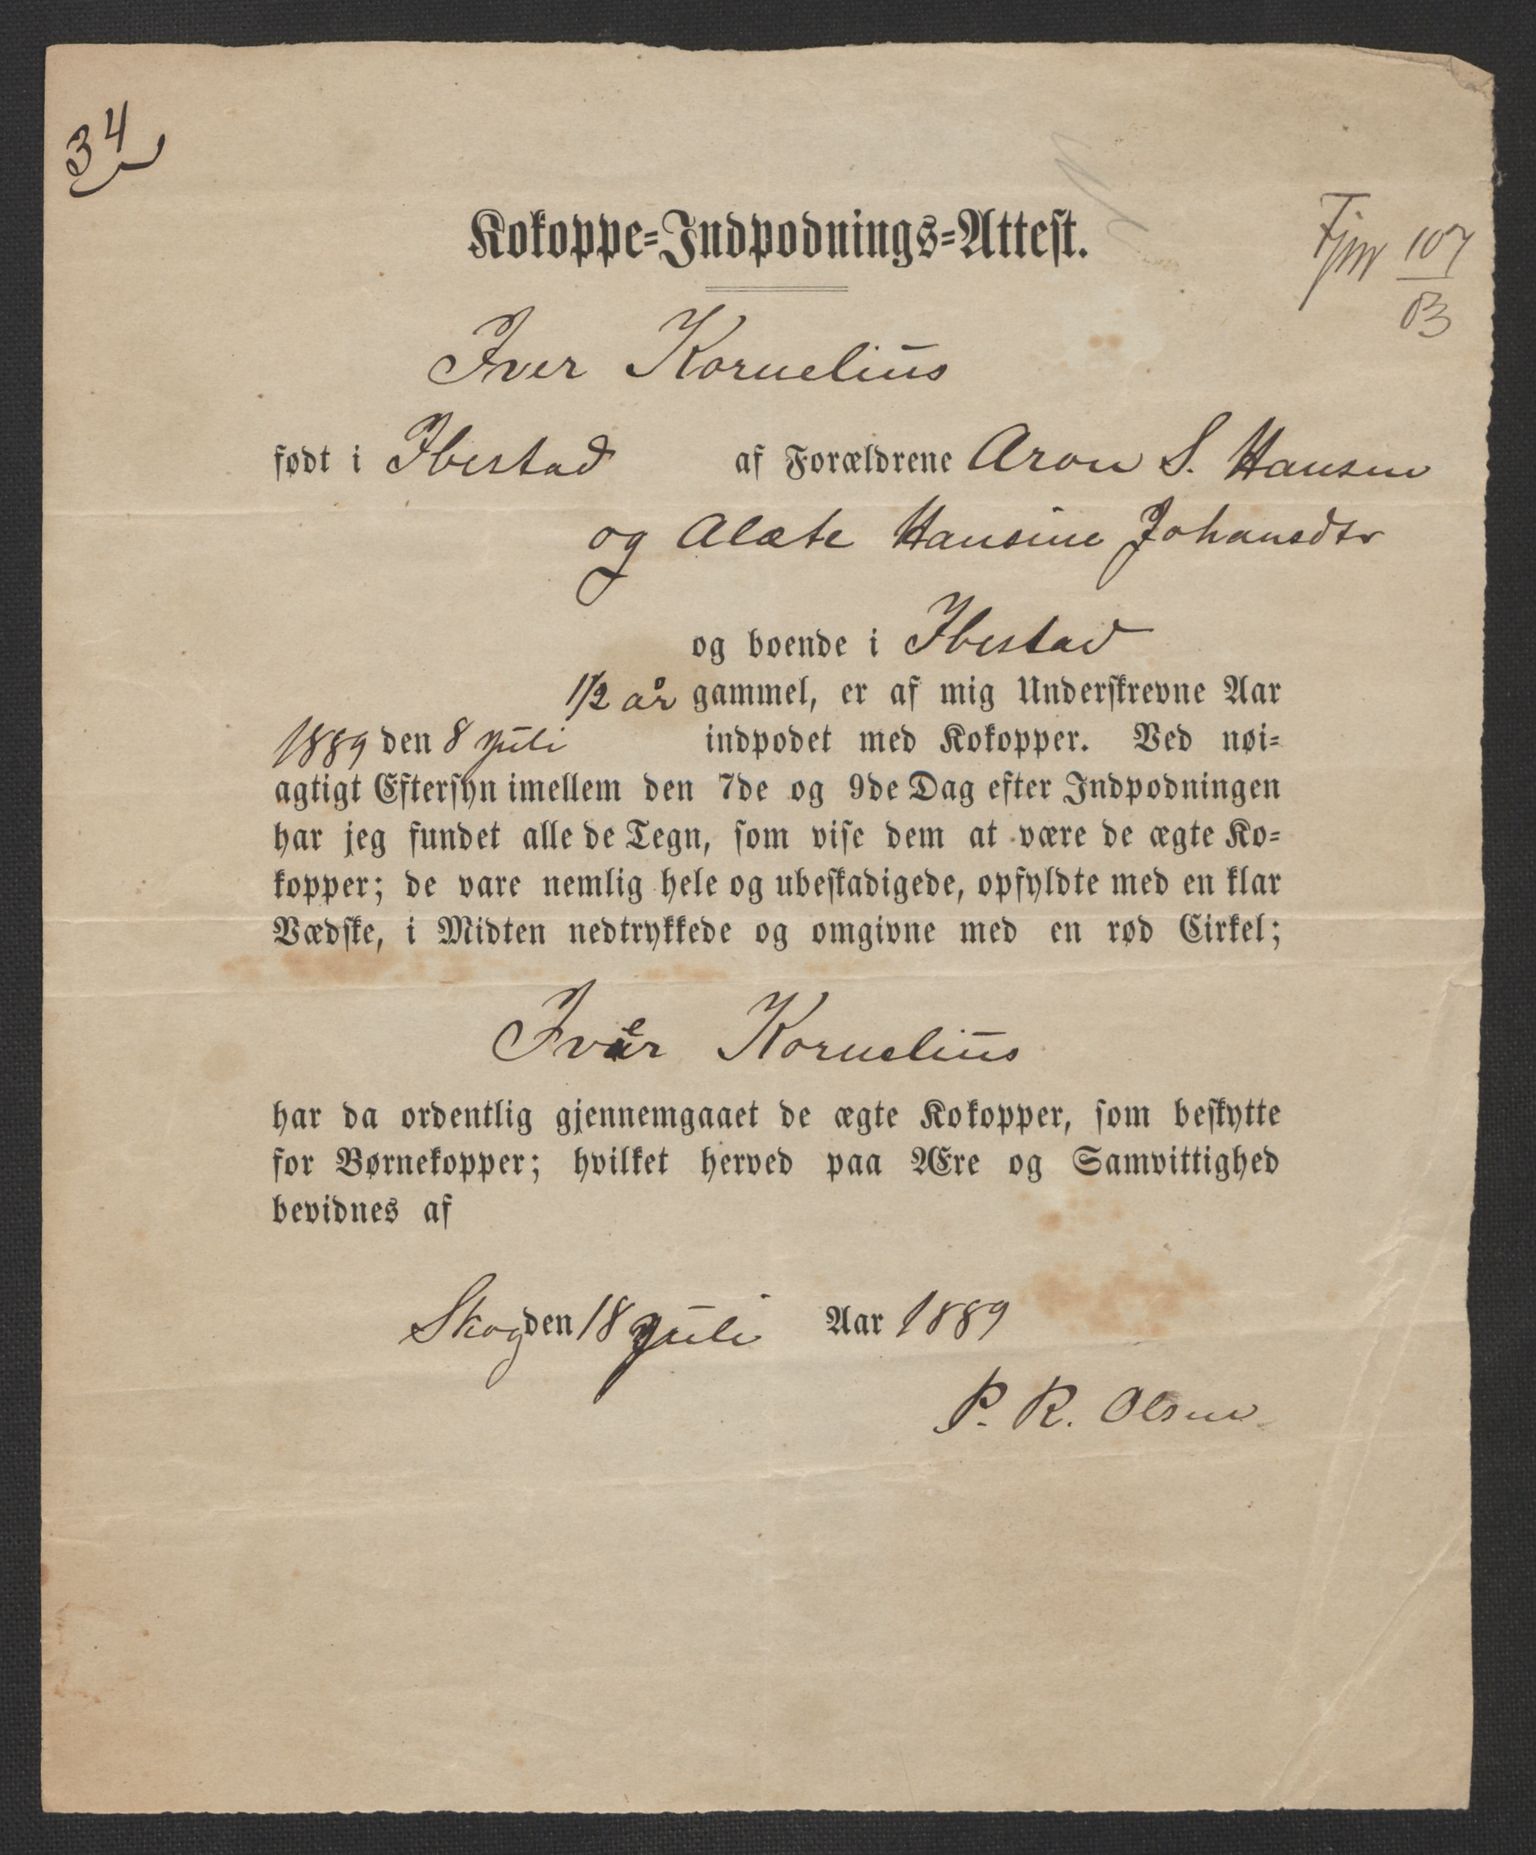 34
Kokoppe-Indpodnings-Attest.
Fjm 107
03
Iver Kornelius
født i Ibestad af Forældrene Aron S. Hansen
og Alæte Hansine Johansdtr
og boende i Ibestad
1/2 år gammel, er af mig Underskrevne Aar
1889 den 8 juli indpodet med Kokopper. Ved nøi-
agtigt Eftersyn imellem den 7de og 9de Dag efter Indpodningen
har jeg fundet alle de Tegn, som vise dem at være de ægte Ko-
kopper; de vare nemlig hele og ubeskadigede, opfyldte med en klar
Vædske, i Midten nedtrykkede og omgivne med en rød Cirkel;
Iver Kornelius
har da ordentlig gjennemgaaet de ægte Kokopper, som beskytte
for Børnekopper; hvilket herved paa Ære og Samvittighed
bevidnes af
Skog den 18 juli Aar 1889
P. R. Olsen